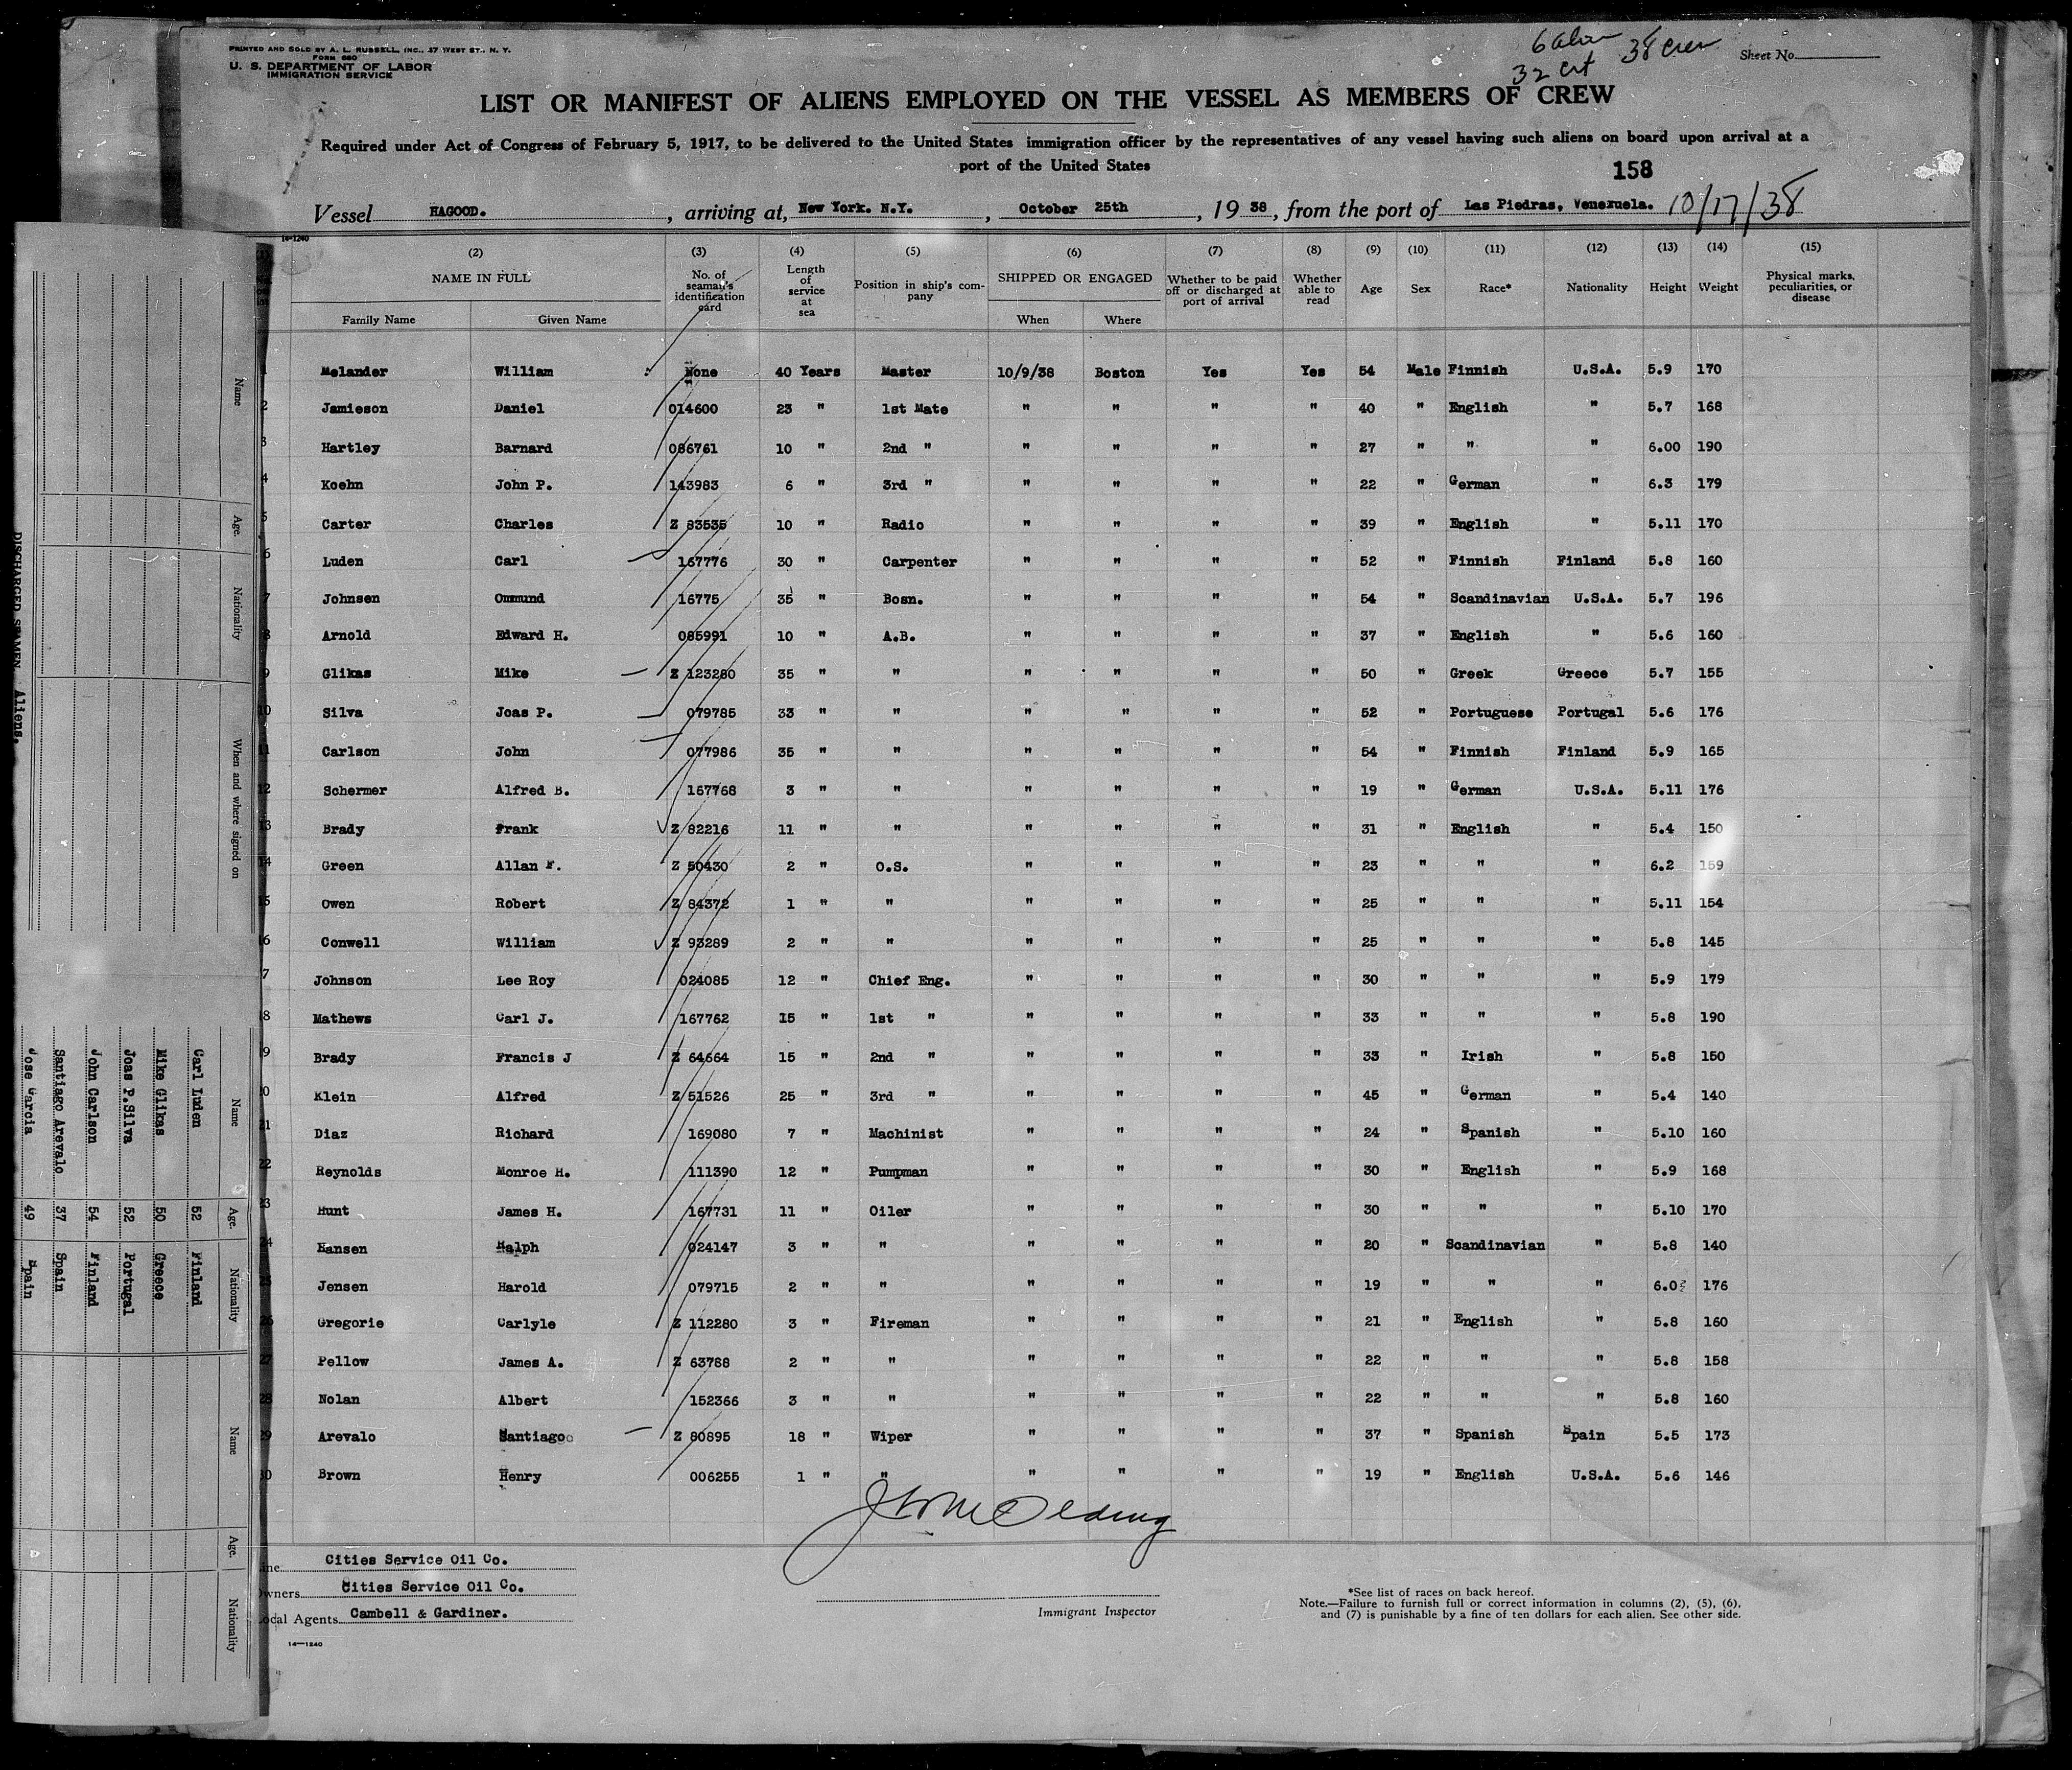 PRINTED AND SOLD BY A. L. RUSSELL, INC., 37 WEST ST., N. Y.
FORM 680
U. S. DEPARTMENT OF LABOR
IMMIGRATION SERVICE
38 crew
32 cit
Sheet No.
LIST OR MANIFEST OF ALIENS EMPLOYED ON THE VESSEL AS MEMBERS OF CREW
Required under Act of Congress of February 5, 1917, to be delivered to the United States immigration officer by the representatives of any vessel having such aliens on board upon arrival at a
port of the United States
158
Vessel HAGOOD. , arriving at, New York. N.Y. , October 25th , 19 38, from the port of Las Piedras, Venezuela. 10/17/38
14-1240
(2) (3) (4) (5) (6) (7) (8) (9) (10) (11) (12) (13) (14) (15)
NAME IN FULL No. of seaman's identification card Length of service at sea Position in ship's company SHIPPED OR ENGAGED Whether to be paid off or discharged at port of arrival Whether able to read Age Sex Race* Nationality Height Weight Physical marks, peculiarities, or disease
Family Name Given Name When Where
1 Melander William None 40 Years Master 10/9/38 Boston Yes Yes 54 Male Finnish U.S.A. 5.9 170
2 Jamieson Daniel 014600 23 " 1st Mate " " " " 40 " English " 5.7 168
3 Hartley Barnard 086761 10 " 2nd " " " " " 27 " " " 6.00 190
4 Koehn John P. 143983 6 " 3rd " " " " " 22 " German " 6.3 179
5 Carter Charles Z 83535 10 " Radio " " " " 39 " English " 5.11 170
6 Luden Carl 167776 30 " Carpenter " " " " 52 " Finnish Finland 5.8 160
7 Johnsen Ommund 16775 35 " Bosn. " " " " 54 " Scandinavian U.S.A. 5.7 196
8 Arnold Edward H. 085991 10 " A.B. " " " " 37 " English " 5.6 160
9 Glikas Mike Z 123280 35 " " " " " " 50 " Greek Greece 5.7 155
10 Silva Joas P. 079785 33 " " " " " " 52 " Portuguese Portugal 5.6 176
11 Carlson John 077986 35 " " " " " " 54 " Finnish Finland 5.9 165
12 Schermer Alfred B. 167768 3 " " " " " " 19 " German U.S.A. 5.11 176
13 Brady Frank Z 82216 11 " " " " " " 31 " English " 5.4 150
14 Green Allan F. Z 50430 2 " O.S. " " " " 23 " " " 6.2 159
15 Owen Robert Z 84372 1 " " " " " " 25 " " " 5.11 154
6 Conwell William Z 93289 2 " " " " " " 25 " " " 5.8 145
7 Johnson Lee Roy 024085 12 " Chief Eng. " " " " 30 " " " 5.9 179
8 Mathews Carl J. 167762 15 " 1st " " " " " 33 " " " 5.8 190
9 Brady Francis J Z 64664 15 " 2nd " " " " " 33 " Irish " 5.8 150
0 Klein Alfred Z 51526 25 " 3rd " " " " " 45 " German " 5.4 140
21 Diaz Richard 169080 7 " Machinist " " " " 24 " Spanish " 5.10 160
22 Reynolds Monroe H. 111390 12 " Pumpman " " " " 30 " English " 5.9 168
23 Hunt James H. 167731 11 " Oiler " " " " 30 " " " 5.10 170
24 Hansen Ralph 024147 3 " " " " " " 20 " Scandinavian " 5.8 140
25 Jensen Harold 079715 2 " " " " " " 19 " " " 6.0 176
26 Gregorie Carlyle Z 112280 3 " Fireman " " " " 21 " English " 5.8 160
27 Pellow James A. Z 63788 2 " " " " " " 22 " " " 5.8 158
28 Nolan Albert 152366 3 " " " " " " 22 " " " 5.8 160
29 Arevalo Santiago Z 80895 18 " Wiper " " " " 37 " Spanish Spain 5.5 173
30 Brown Henry 006255 1 " " " " " " 19 " English U.S.A. 5.6 146
Cities Service Oil Co.
Owners Cities Service Oil Co.
Local Agents Cambell & Gardiner.
14-1240
Immigrant Inspector
*See list of races on back hereof.
Note.—Failure to furnish full or correct information in columns (2), (5), (6),
and (7) is punishable by a fine of ten dollars for each alien. See other side.
DISCHARGED SEAMEN Aliens.
Name Age. Nationality When and where signed on
Name Age. Nationality
Carl Luden 52 Finland
Mike Glikas 50 Greece
Joas P.Silva 52 Portugal
John Carlson 54 Finland
Santiago Arevalo 37 Spain
Jose Garcia 49 Spain
Name Age. Nationality